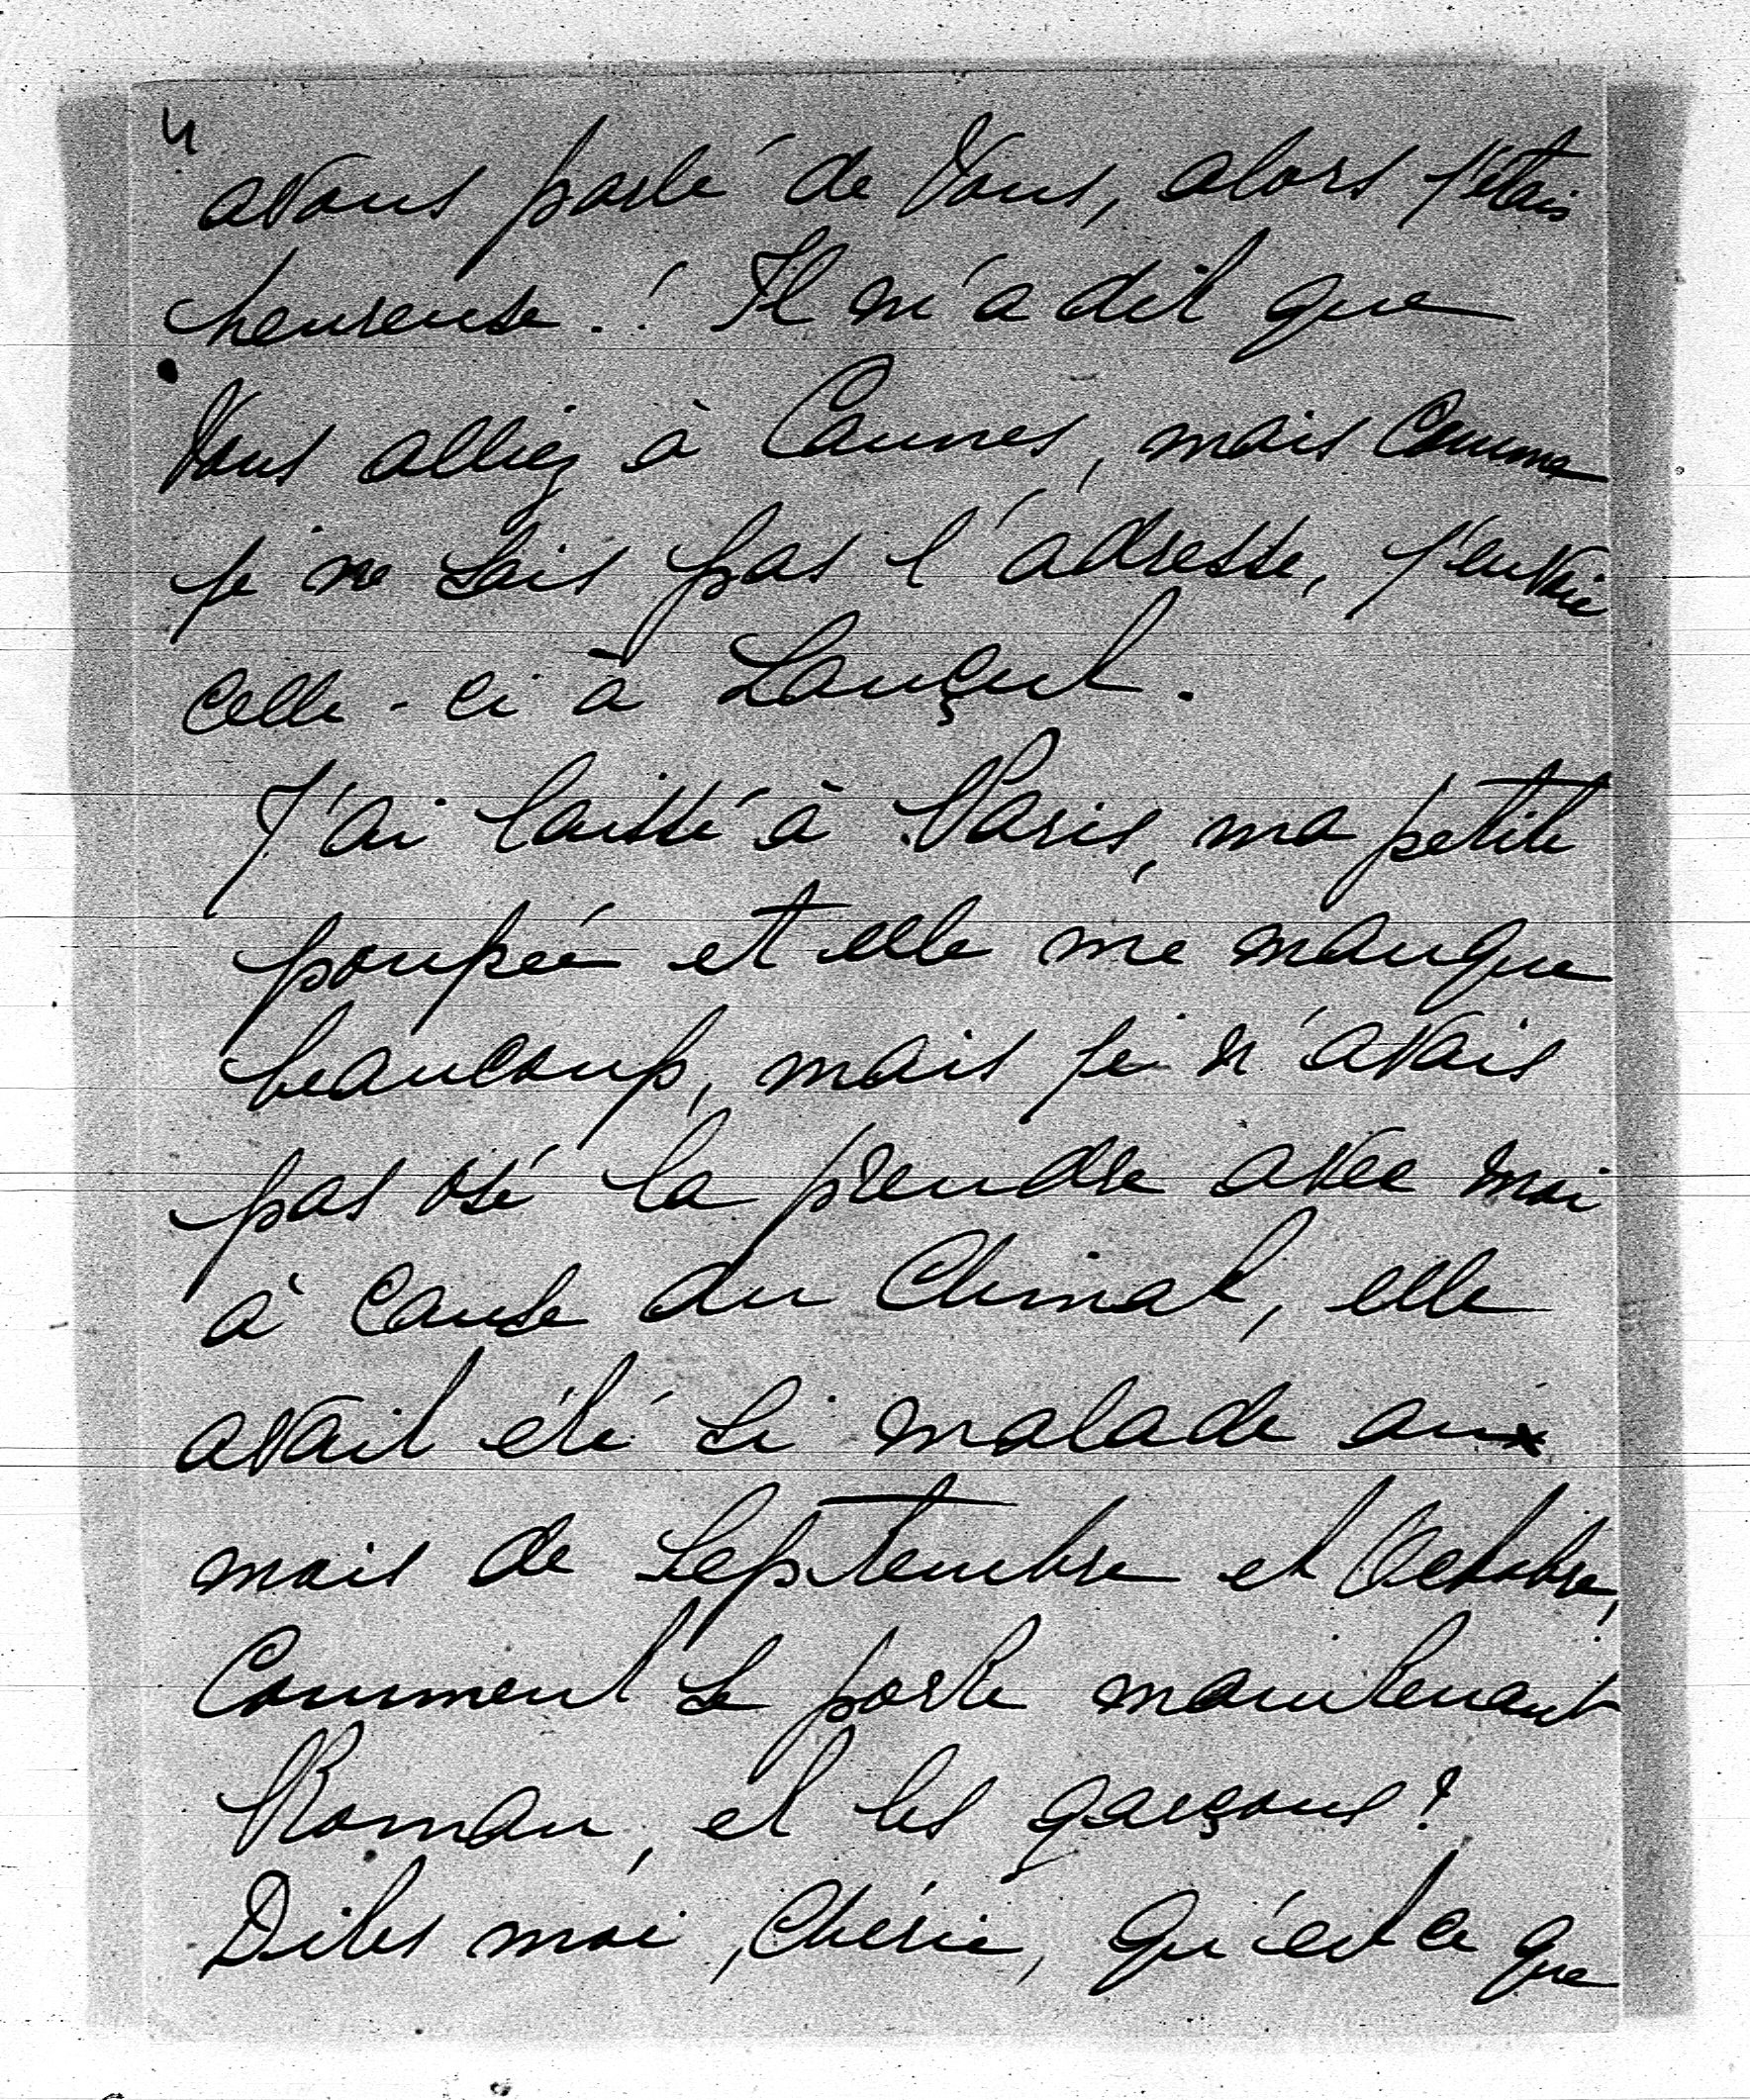 4
avons parlé de Vous, alors j'étais
heureuse.! Il m'a dit que
Vous alliez à Cannes, mais Comme
je ne sais pas l'adresse, j'envoie
celle-ci à Lançut.
J'ai laissé à Paris, ma petite
poupée et elle me manque
beaucoup, mais je n'avais
pas osé la prendre avec moi
à cause du Climat, elle
avait été si malade aux
mois de Septembre et Octobre,
Comment se porte maintenant
Roman, et les garçons?
Dites moi, Chérie, qu'est ce que